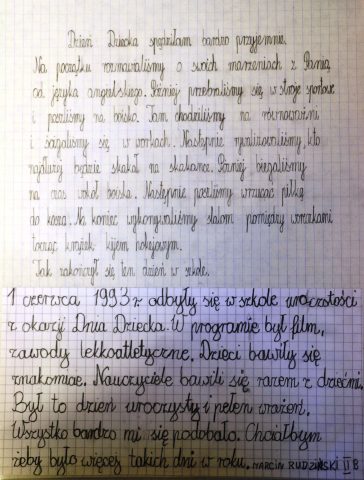 Dzień Dziecka spędziłam bardzo przyjemnie.
Na początku rozmawialiśmy o swoich marzeniach z Panią
od języka angielskiego. Później przebraliśmy się w stroje sportow.
i poszliśmy na boisko. Tam chodziliśmy na równoważni
i ścigaliśmy się w workach. Następnie rywalizowaliśmy, kto
najdłużej będzie skakał na skakance. Później biegaliśmy
na czas wokół boiska. Następnie poszliśmy wrzucać piłkę
do kosza. Na koniec wykonywaliśmy slalom pomiędzy woreczkami
tocząc krążek kijem hokejowym.
Tak zakończył się ten dzień w szkole.
1 czerwca 1993 r. odbyły się w szkole uroczstości
z okazji Dnia Dziecka. W programie był film,
zawody lekkoatletyczne. Dzieci bawiły się
znakomicie. Nauczyciele bawili się razem z dziećmi.
Był to dzień uroczysty i pełen wrażeń.
Wszystko bardzo mi się podobało. Chciałbym
żeby było więcej takich dni w roku. MARCIN RUDZIŃSKI II B